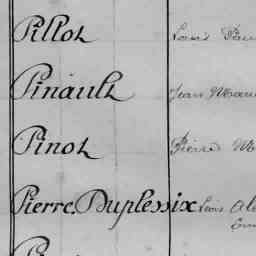 Pillot Louis
Pinault Jean
Pinot Pierre
Pierre Duplessix Louis